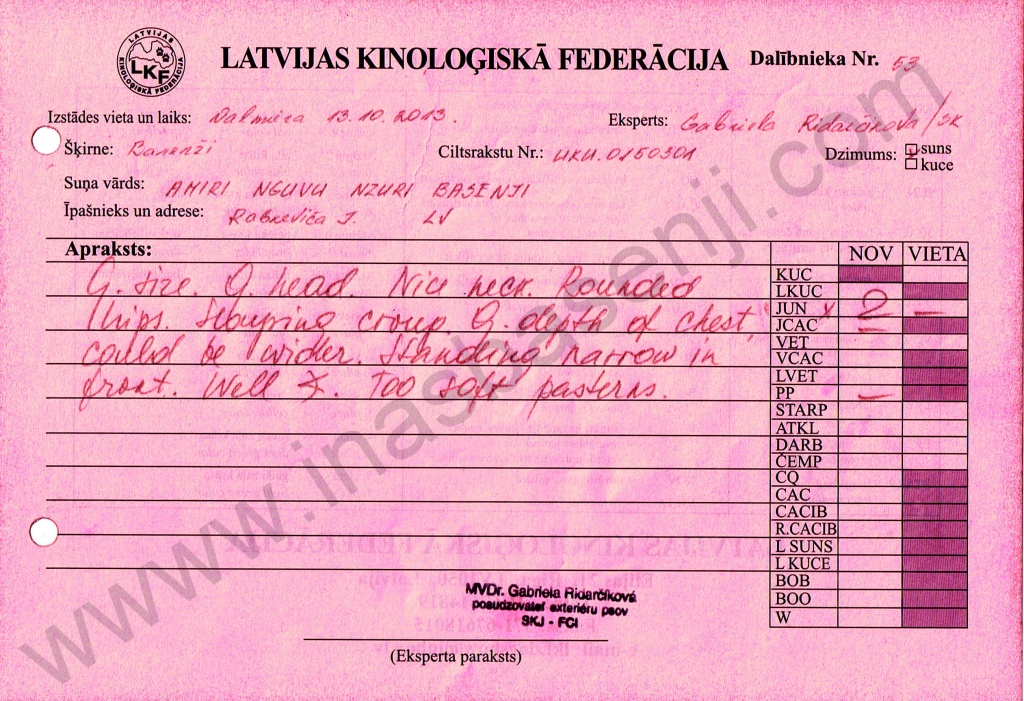 LATVIJAS KINOLOĢISKĀ FEDERĀCIJA
LKF
LATVIJAS KINOLOĢISKĀ FEDERĀCIJA Dalībnieka Nr. 53
Izstādes vieta un laiks: Valmiera 13.10.2013. Eksperts: Gabriela Ridarčíkova/SK
Šķirne: Basenži Ciltsrakstu Nr.: UKU.0150301 Dzimums: suns
kuce
Suņa vārds: AMIRI NGUVU NZURI BASENJI
Īpašnieks un adrese: J. LV
Apraksts: NOV VIETA
G. size. G. head. Nice neck. Rounded
thips. Slouping croup. G. depth of chest,
could be wider. Standing narrow in
front. Well Too soft pasterns.
KUC
LKUC
JUN x 2 –
JCAC –
VET
VCAC
LVET
PP –
STARP
ATKL
DARB
ČEMP
CQ
CAC
CACIB
R.CACIB
L SUNS
L KUCE
BOB
BOO
W
MVDr. Gabriela Ridarčíková
posudzovateľ exteriéru psov
SKJ - FCI
(Eksperta paraksts)
www.inasbasenji.com